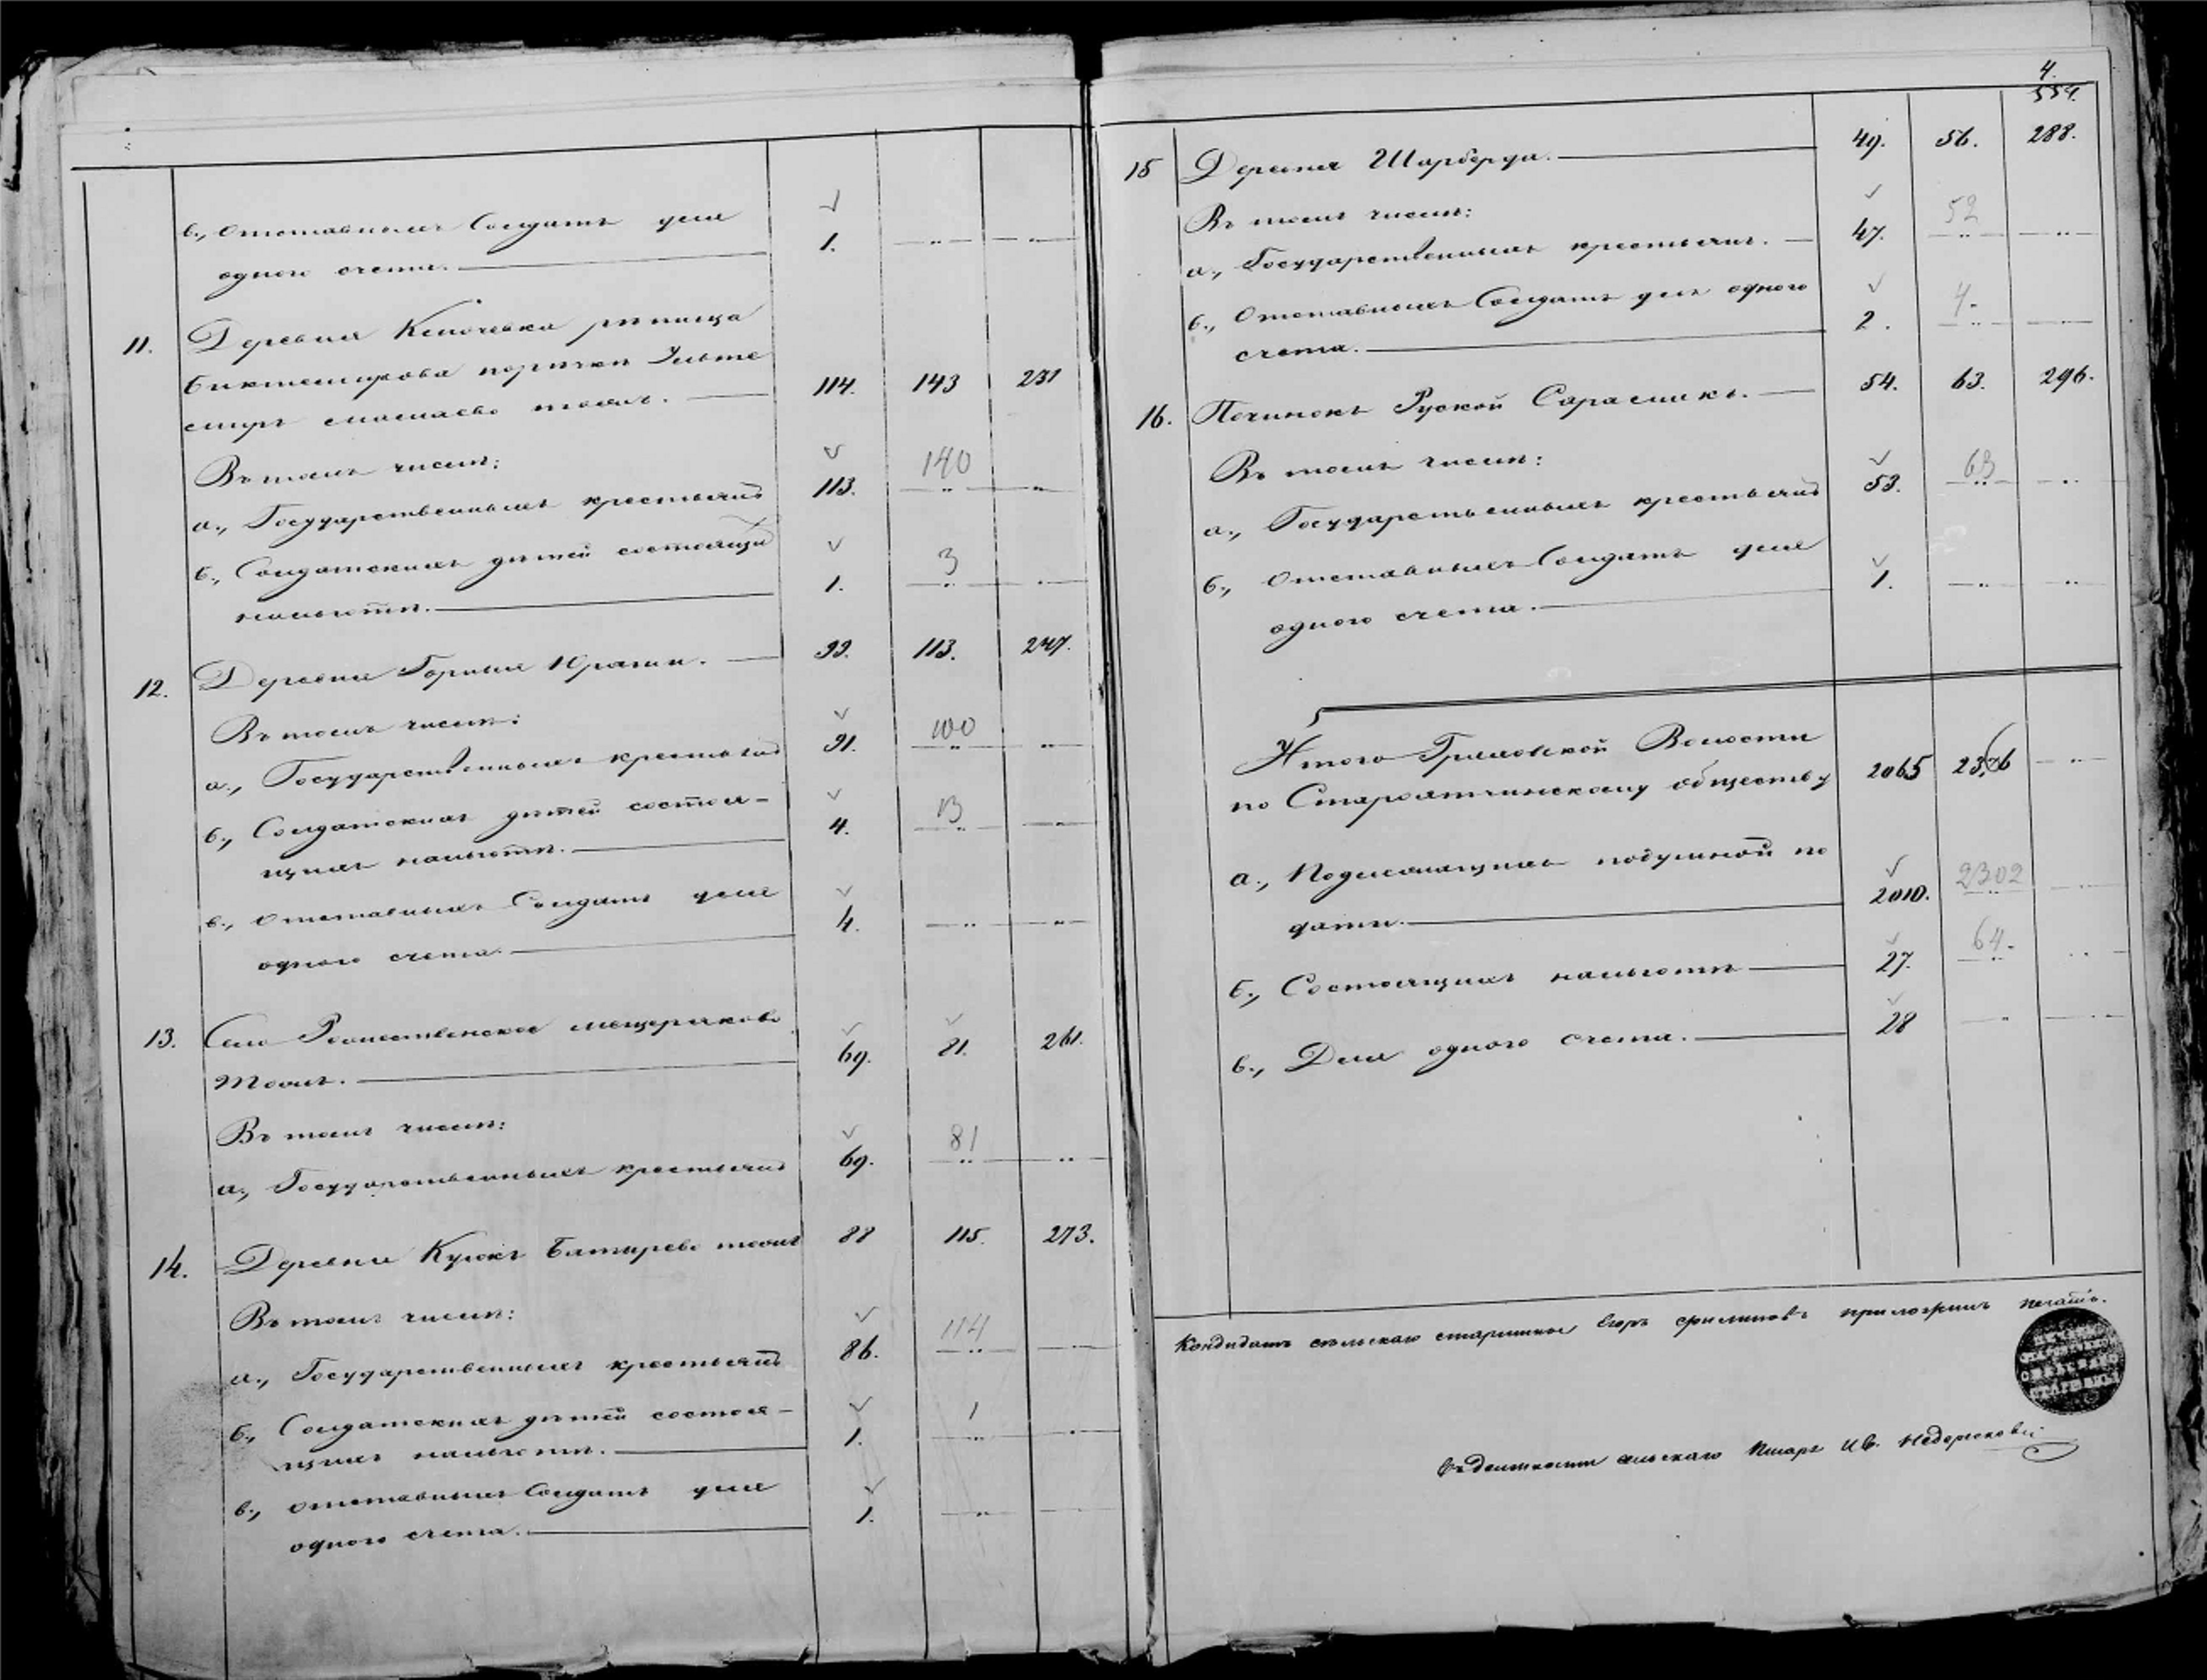 в., Отставныхъ Солдатъ для 1. „ „
одного счета.
11. Деревня
114. 143 231
Въ томъ числѣ: 140
а., Государственныхъ крестьянъ 113. „ „
б., Солдатскихъ дѣтей состоящи 3
нальготѣ. 1. „ „
12. Деревня Горные Юраши. 99. 113. 247.
Въ томъ числѣ: 100
а., Государственныхъ крестьянъ 91. „ „
б., Солдатскихъ дѣтей состоя- 13
щихъ нальготѣ. 4. „ „
в., Отставныхъ Солдатъ для
одного счета. 4. „ „
13. Село Рождественское Мещеряково 69. 81. 261.
тожъ.
Въ томъ числѣ: 81
а., Государственныхъ крестьянъ 69. „ „
14. Деревня Курокъ Батырево тожъ 88 115. 273.
Въ томъ числѣ: 114
а., Государственныхъ крестьянъ 86. „ „
б., Солдатскихъ дѣтей состоя- 1
щихъ нальготѣ. 1. „ „
в., Отставныхъ Солдатъ для 1. „ „
одного счета.
4.
554.
15 Деревня Шарберда. 49. 56. 288.
Въ томъ числѣ: 52
а., Государственныхъ крестьянъ. 47. „ „
б., Отставныхъ Солдатъ для одного 4.
счета. 2. „ „
16. Починокъ Руской Сарасмакъ. 54. 63. 296.
Въ томъ числѣ: 63
а., Государственныхъ крестьянъ 53. „ „
б., Отставныхъ Солдатъ для 1. „ „
одного счета.
Итого Граховской Волости
по Староятчинскому обществу 2065 „
а., Подлежащихъ подушной по 2302
дати. 2010. „ „
б., Состоящихъ нальготѣ 27. 64. „
в., Для одного счета. 28 „ „
Кандидатъ сельскаго старшины Егоръ Филиповъ приложилъ печать.
СЕЛЬСКАГО
СТАРШИНЫ
Въ должности сельскаго Писаря Ив.